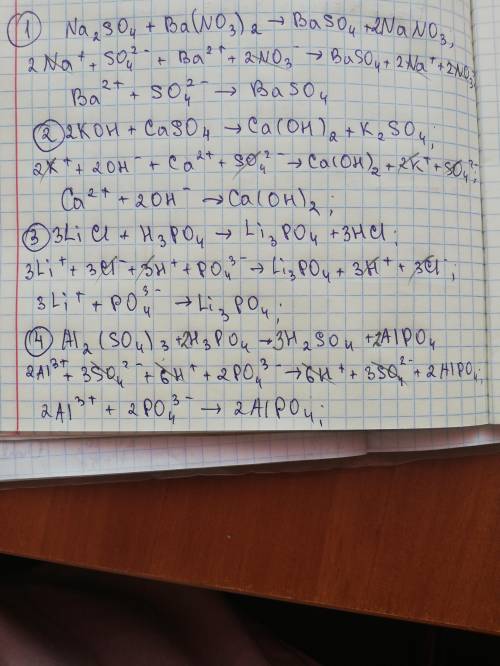 ① Na₂SO₄ + Ba(NO₃)₂ → BaSO₄ + 2NaNO₃,
2Na⁺ + SO₄²⁻ + Ba²⁺ + 2NO₃⁻ → BaSO₄ + 2Na⁺ + 2NO₃⁻
Ba²⁺ + SO₄²⁻ → BaSO₄
② 2KOH + CaSO₄ → Ca(OH)₂ + K₂SO₄;
2K⁺ + 2OH⁻ + Ca²⁺ + SO₄²⁻ → Ca(OH)₂ + 2K⁺ + SO₄²⁻;
Ca²⁺ + 2OH⁻ → Ca(OH)₂;
③ 3LiCl + H₃PO₄ → Li₃PO₄ + 3HCl;
3Li⁺ + 3Cl⁻ + 3H⁺ + PO₄³⁻ → Li₃PO₄ + 3H⁺ + 3Cl⁻;
3Li⁺ + PO₄³⁻ → Li₃PO₄;
④ Al₂(SO₄)₃ + 2H₃PO₄ → 3H₂SO₄ + 2AlPO₄
2Al³⁺ + 3SO₄²⁻ + 6H⁺ + 2PO₄³⁻ → 6H⁺ + 3SO₄²⁻ + 2AlPO₄;
2Al³⁺ + 2PO₄³⁻ → 2AlPO₄;